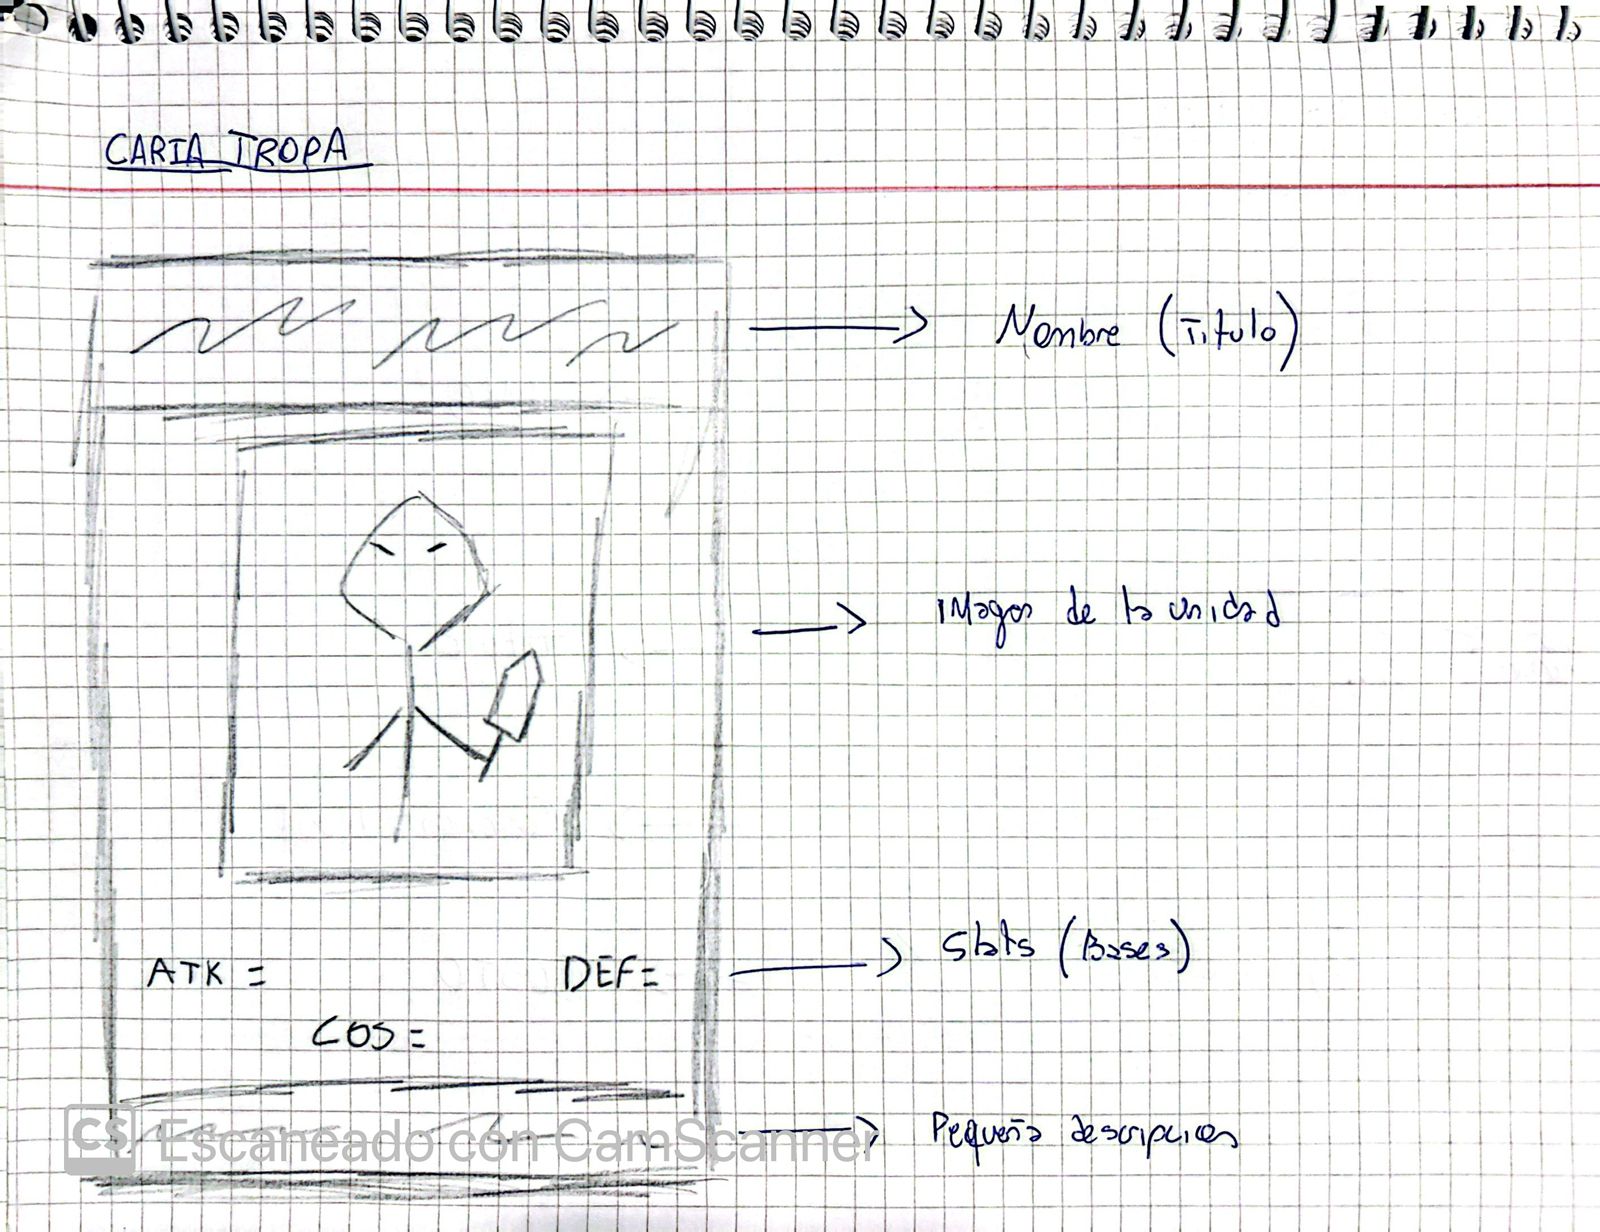 CARTA TROPA
Nombre (Titulo)
Imagen de la unidad
Stats (Bases)
ATK = DEF=
COS =
Pequeña descripcion
CS Escaneado con CamScanner